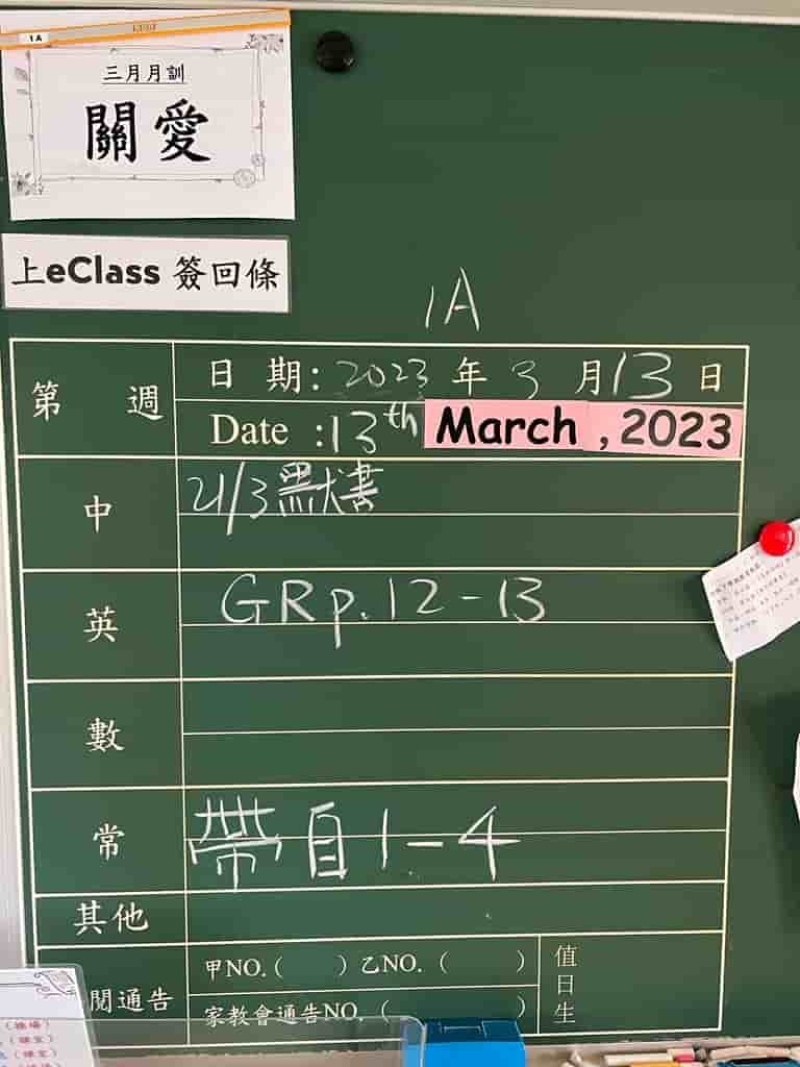 1A
三月月訓
關愛
上eClass 簽回條
1A
第 週
日 期: 2023 年 3 月 13 日
Date : 13th March , 2023
中
21/3 默書
英
GR p. 12 - 13
數
常
帶自 1 - 4
其他
閱通告
甲NO. ( ) 乙NO. ( )
家教會通告NO. ( )
值日生